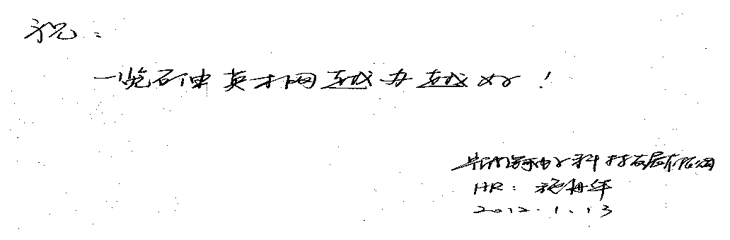 祝：
一览研电英才网越办越好！
电子科技发展有限公司
HR：
2012.1.13